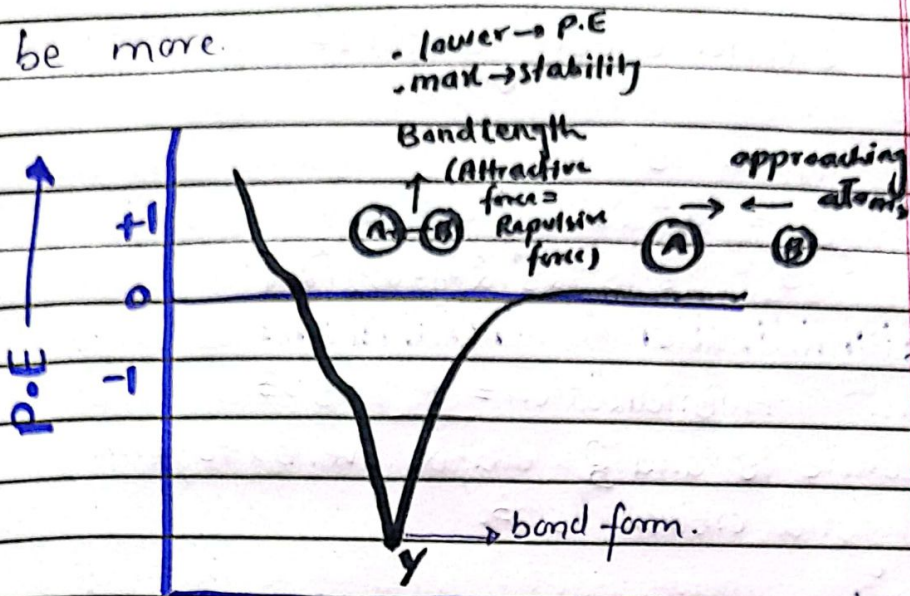 be more.
. lower → P.E
. max → stability
Bond length
(Attractive
force =
Repulsive
force)
approaching
atoms
A B
A B
+1
0
-1
P.E
bond form.
y